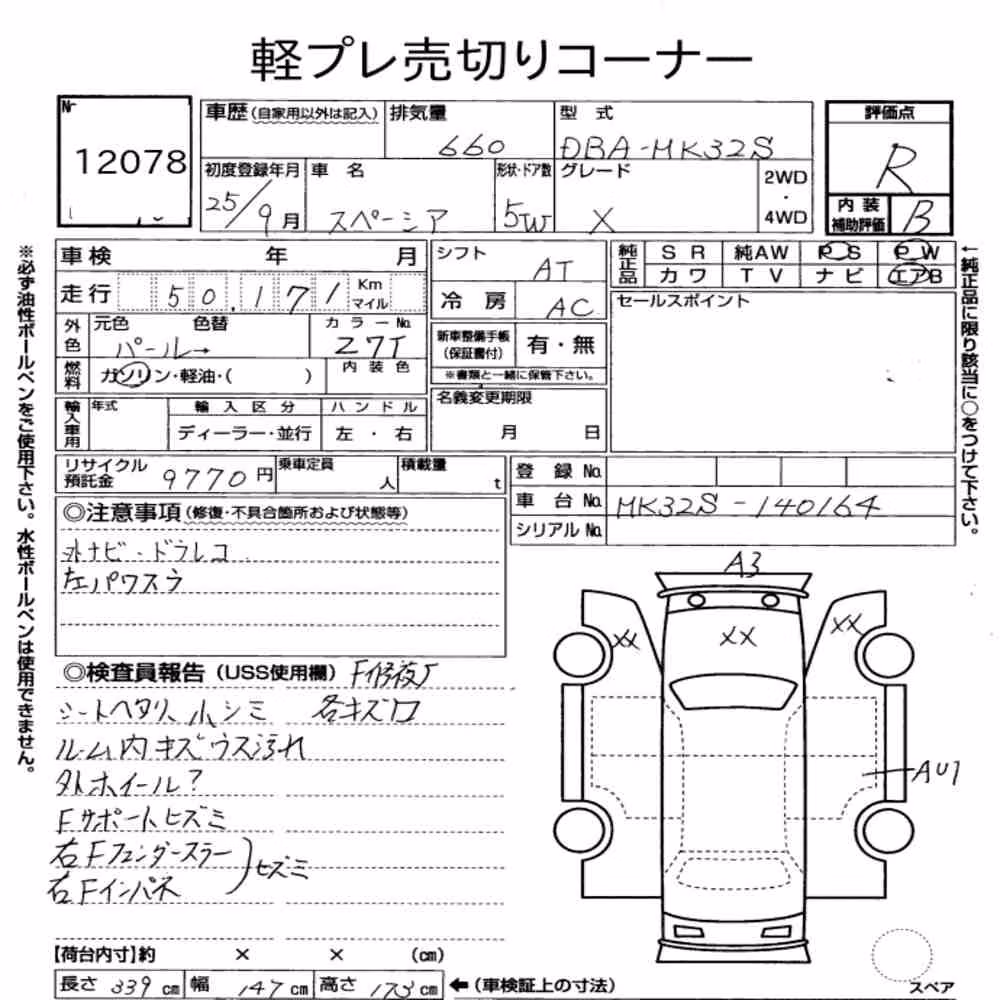 軽プレ売切りコーナー
Nr
12078
車歴(自家用以外は記入) 排気量 660
型式 DBA-MK32S
評価点 R
初度登録年月 25/9月
車名 スペーシア
形状・ドア数 5W
グレード X
2WD・4WD
内装補助評価 B
車検 年 月
シフト AT
純正品 SR 純AW PS PW
カワ TV ナビ エアB
走行 50.171 Km マイル
冷房 AC
セールスポイント
外色 元色 色替 カラーNo.
パール→ Z7T
新車整備手帳(保証書付) 有・無
※書類と一緒に保管下さい。
燃料 ガソリン・軽油・( ) 内装色
名義変更期限
月 日
輸入車用 年式 輸入区分 ハンドル
ディーラー・並行 左・右
リサイクル預託金 9770円 乗車定員 人 積載量 t
登録No.
車台No. MK32S-140164
シリアルNo.
◎注意事項(修復・不具合箇所および状態等)
外ナビ・ドラレコ
左パワスラ
◎検査員報告(USS使用欄) F修復歴
シートヘタリ、小シミ 各キズ口
ルーム内キズウス汚れ
外ホイール?
Fサポートヒズミ
右Fフェンダースラー
右Fインパネ
ヒズミ
A3
XX XX XX
AU1
【荷台内寸】約 × × (cm)
長さ 339cm 幅 147cm 高さ 173cm ←(車検証上の寸法)
スペア
※必ず油性ボールペンをご使用下さい。水性ボールペンは使用できません。
←純正品に限り該当に○をつけて下さい。